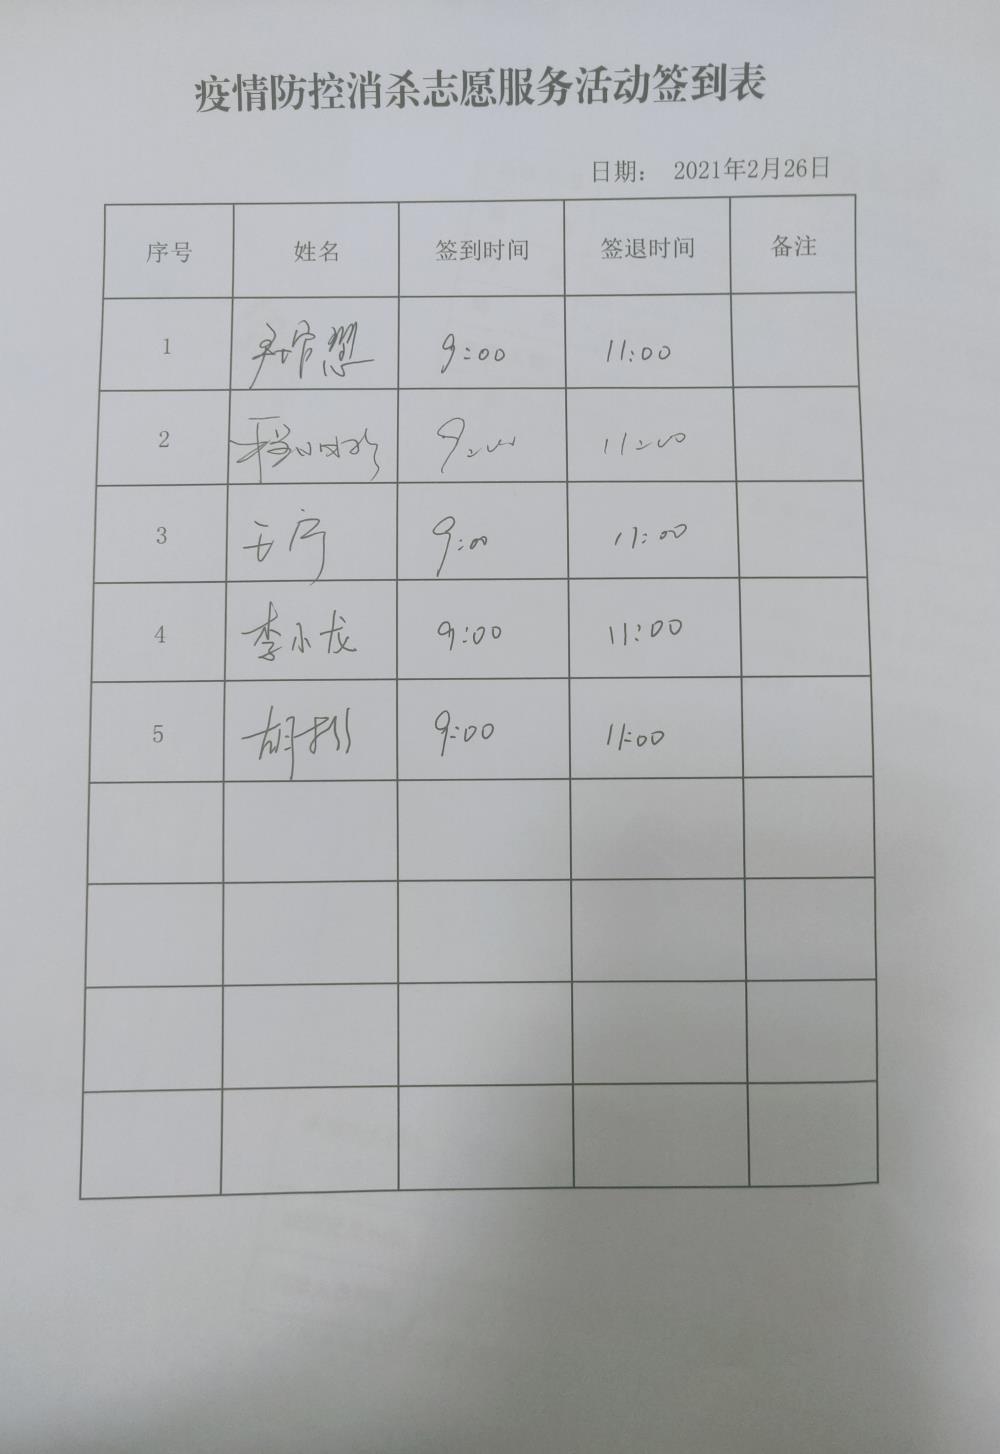 疫情防控消杀志愿服务活动签到表
日期： 2021年2月26日
序号 姓名 签到时间 签退时间 备注
1 9:00 11:00
2 9:00 11:00
3 9:00 11:00
4 李小龙 9:00 11:00
5 9:00 11:00